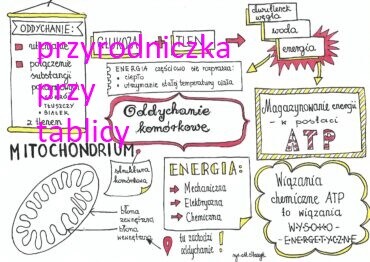 ODDYCHANIE:
połączenie
substancji
TŁUSZCZY
BIAŁEK
z tlenem
przyrodniczka
przy
tablicy
GLUKOZA
TLEN
dwutlenek
węgla
woda
energia
ENERGIA częściowo się rozprasza:
ciepło
utrzymanie stałej temperatury ciała
Oddychanie
komórkowe
Magazynowanie energii
- w postaci
ATP
MITOCHONDRIUM
struktura
komórkowa
błona
zewnętrzna
błona
wewnętrzna
ENERGIA:
Mechaniczna
Elektryczna
Chemiczna
tu zachodzi
oddychanie!
Wiązania
chemiczne ATP
to wiązania
WYSOKO-
-ENERGETYCZNE